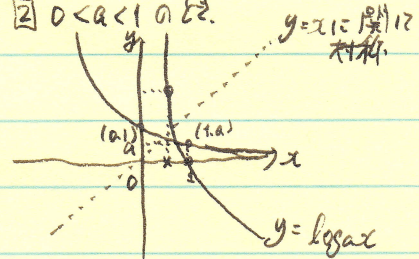 2 0<a<1のとき.
y=xに関して
対称.
y
(0,1)
a
(1,a)
x
0
1
y=logax